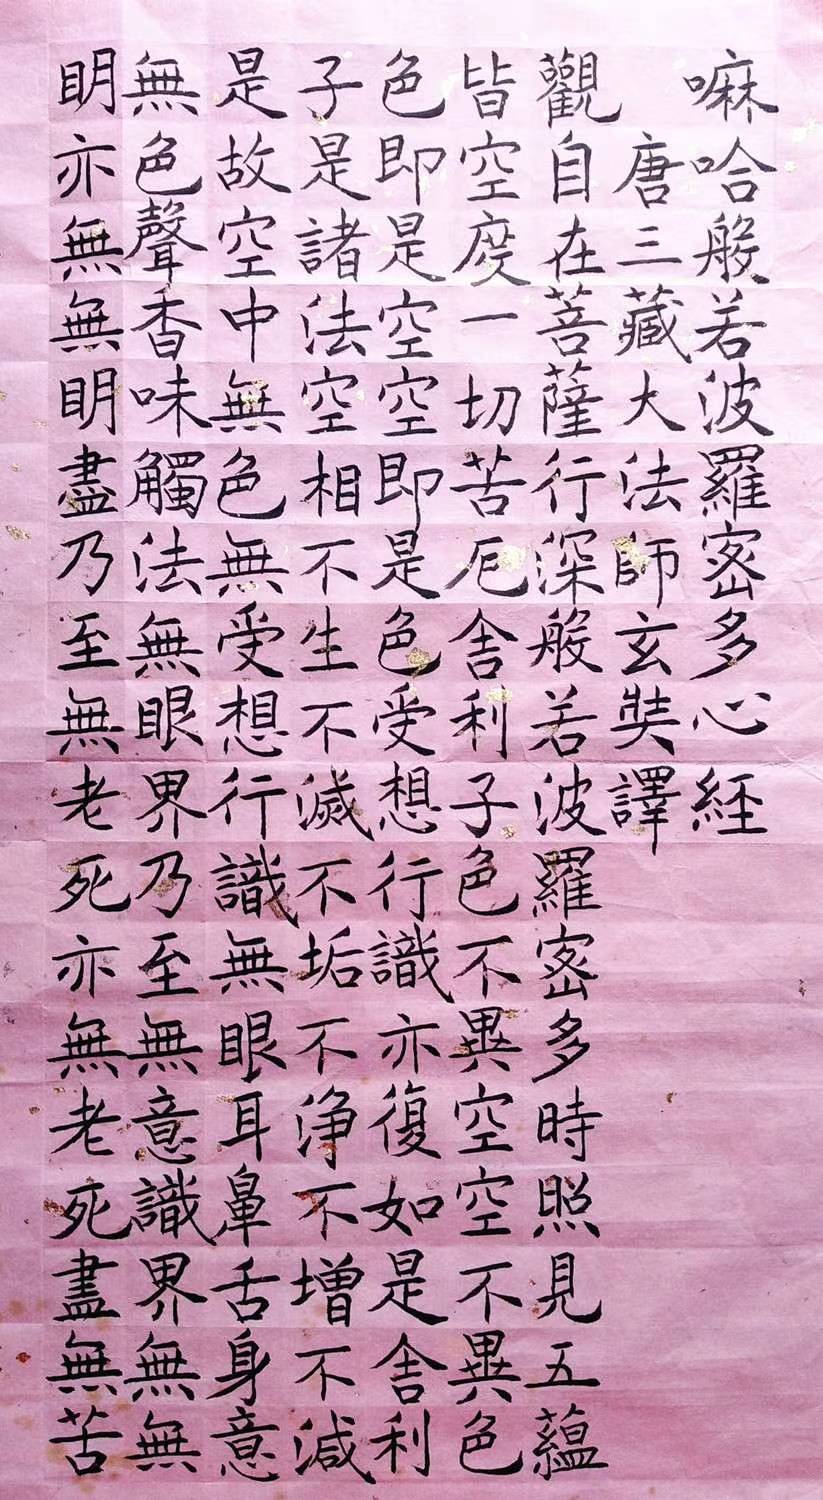 嘛哈般若波羅密多心経
唐三藏大法師玄奘譯
觀自在菩薩行深般若波羅密多時照見五蘊
皆空度一切苦厄舍利子色不異空空不異色
色即是空空即是色受想行識亦復如是舍利
子是諸法空相不生不滅不垢不净不增不減
是故空中無色無受想行識無眼耳鼻舌身意
無色聲香味觸法無眼界乃至無意識界無無
明亦無無明盡乃至無老死亦無老死盡無苦